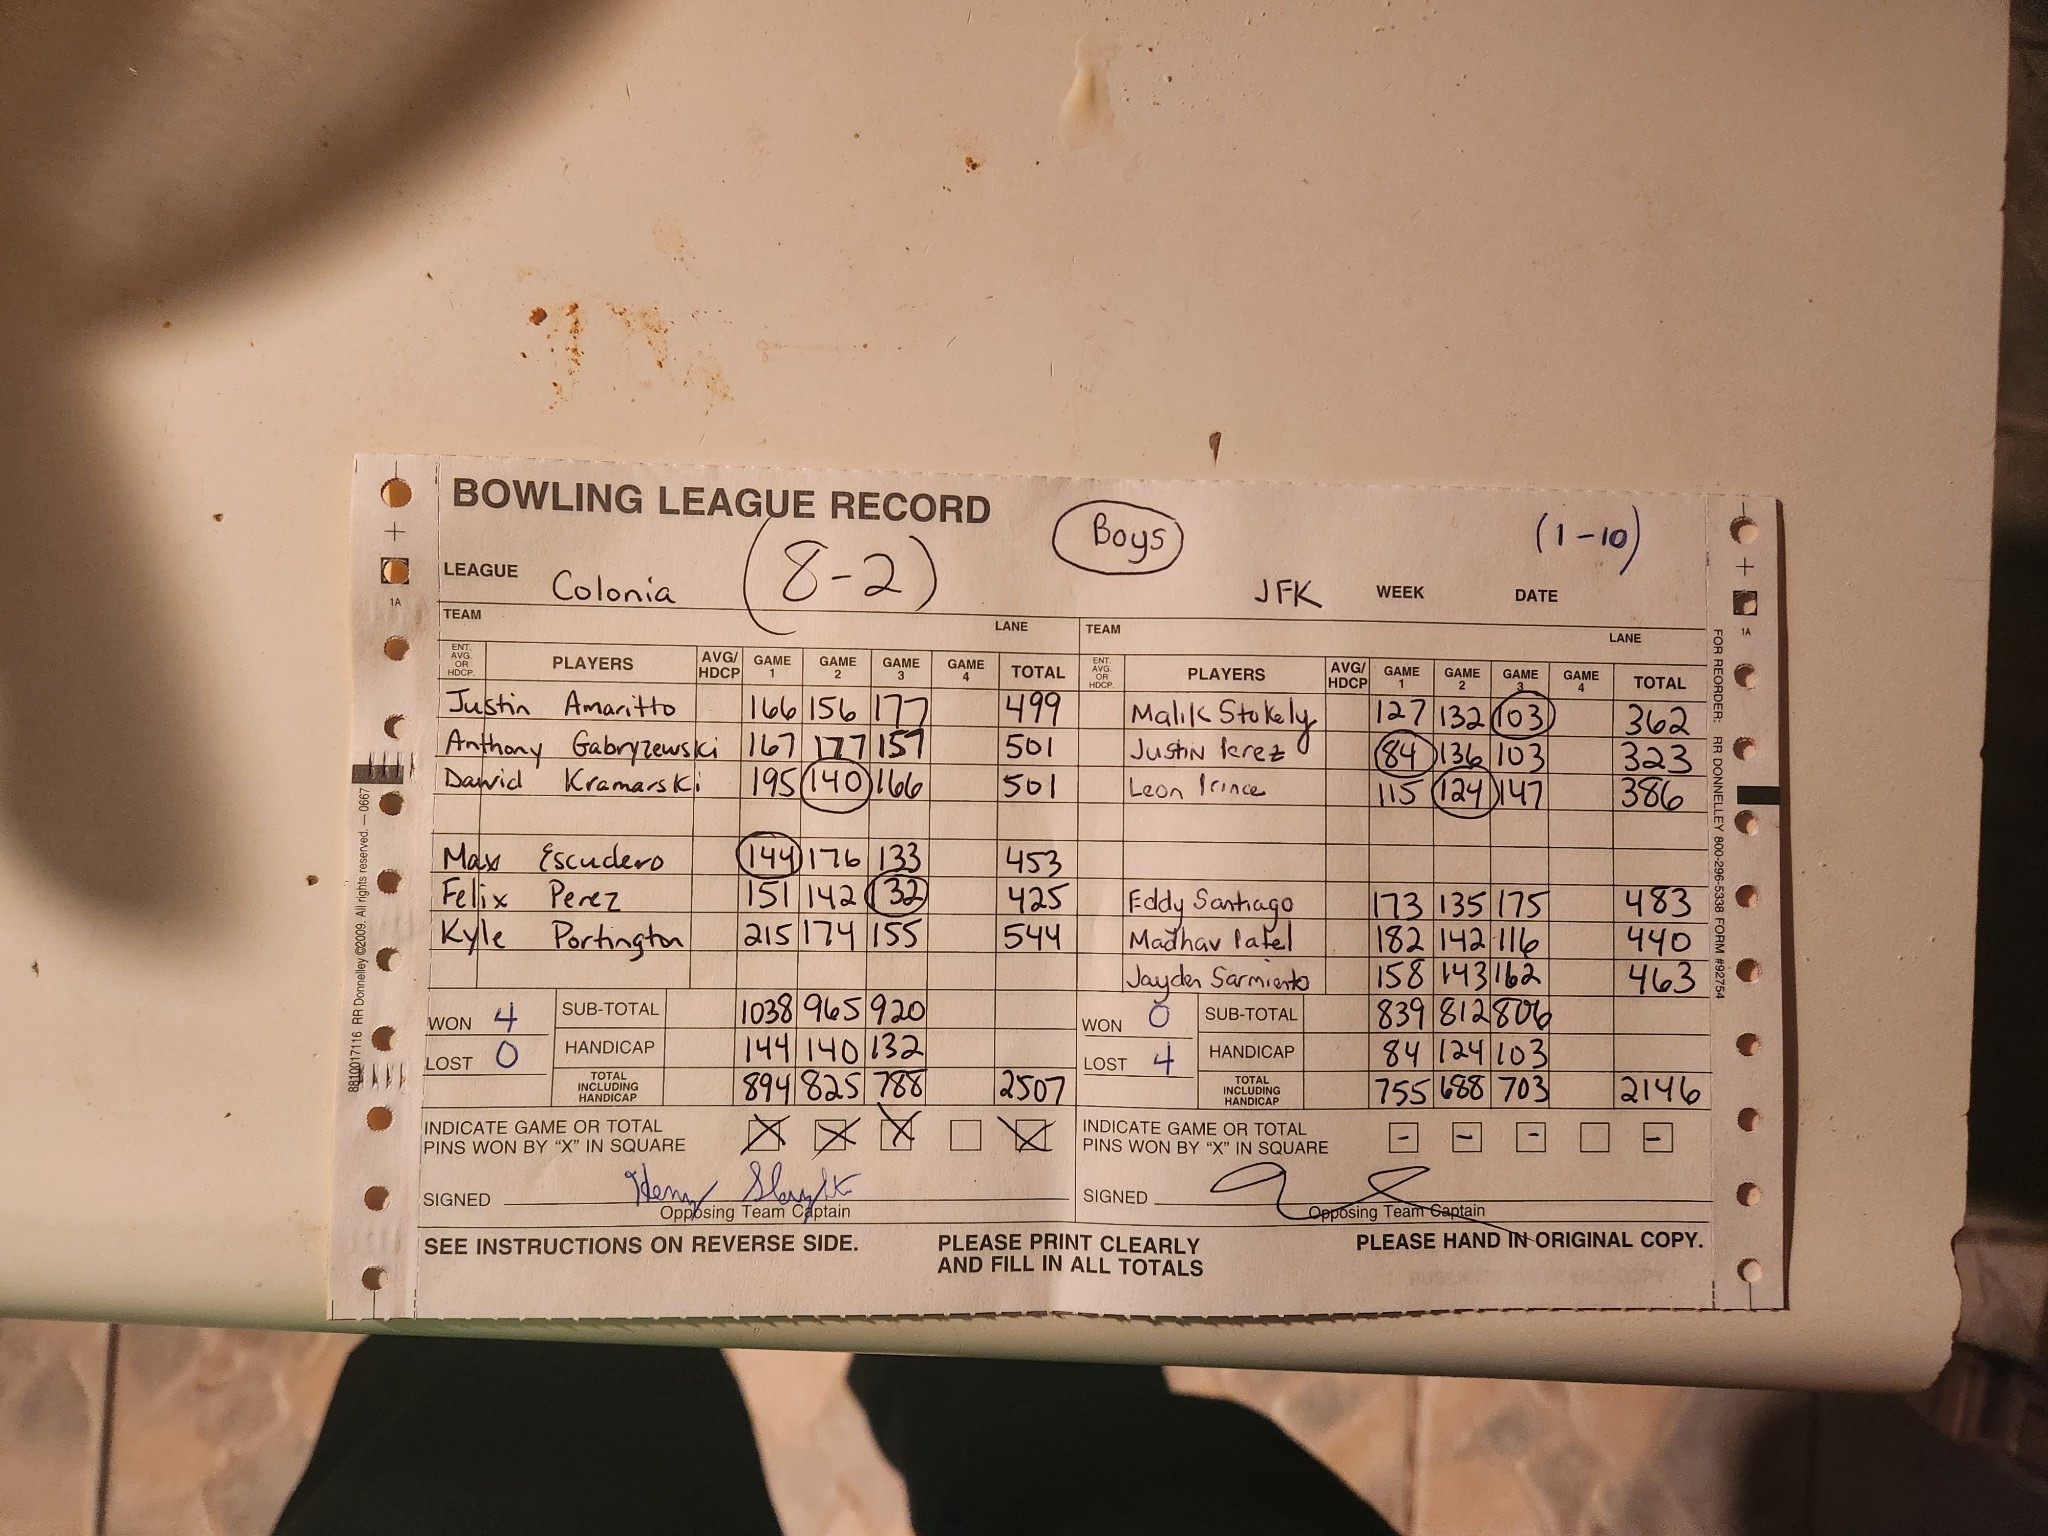 BOWLING LEAGUE RECORD
Boys
(1-10)
LEAGUE Colonia (8-2)
JFK WEEK DATE
TEAM LANE TEAM LANE
ENT. AVG. OR HDCP. PLAYERS AVG/HDCP GAME 1 GAME 2 GAME 3 GAME 4 TOTAL ENT. AVG. OR HDCP. PLAYERS AVG/HDCP GAME 1 GAME 2 GAME 3 GAME 4 TOTAL
Justin Amaritto 166 156 177 499 Malik Stokely 127 132 103 362
Anthony Gabryzewski 167 177 157 501 Justin Perez 84 136 103 323
Dawid Kramarski 195 140 166 501 Leon Prince 115 124 147 386
Max Escudero 144 176 133 453
Felix Perez 151 142 132 425 Eddy Santiago 173 135 175 483
Kyle Portington 215 174 155 544 Madhav Patel 182 142 116 440
Jayden Sarmiento 158 143 162 463
WON 4 SUB-TOTAL 1038 965 920 WON 0 SUB-TOTAL 839 812 806
LOST 0 HANDICAP 144 140 132 LOST 4 HANDICAP 84 124 103
TOTAL INCLUDING HANDICAP 894 825 788 2507 TOTAL INCLUDING HANDICAP 755 688 703 2146
INDICATE GAME OR TOTAL X X X X INDICATE GAME OR TOTAL - - - -
PINS WON BY "X" IN SQUARE PINS WON BY "X" IN SQUARE
SIGNED Henry SIGNED
Opposing Team Captain Opposing Team Captain
SEE INSTRUCTIONS ON REVERSE SIDE. PLEASE PRINT CLEARLY PLEASE HAND IN ORIGINAL COPY.
AND FILL IN ALL TOTALS
1A
1A
8810017116 RR Donnelley ©2009. All rights reserved. — 0667
FOR REORDER: RR DONNELLEY 800-296-5338 FORM #92754